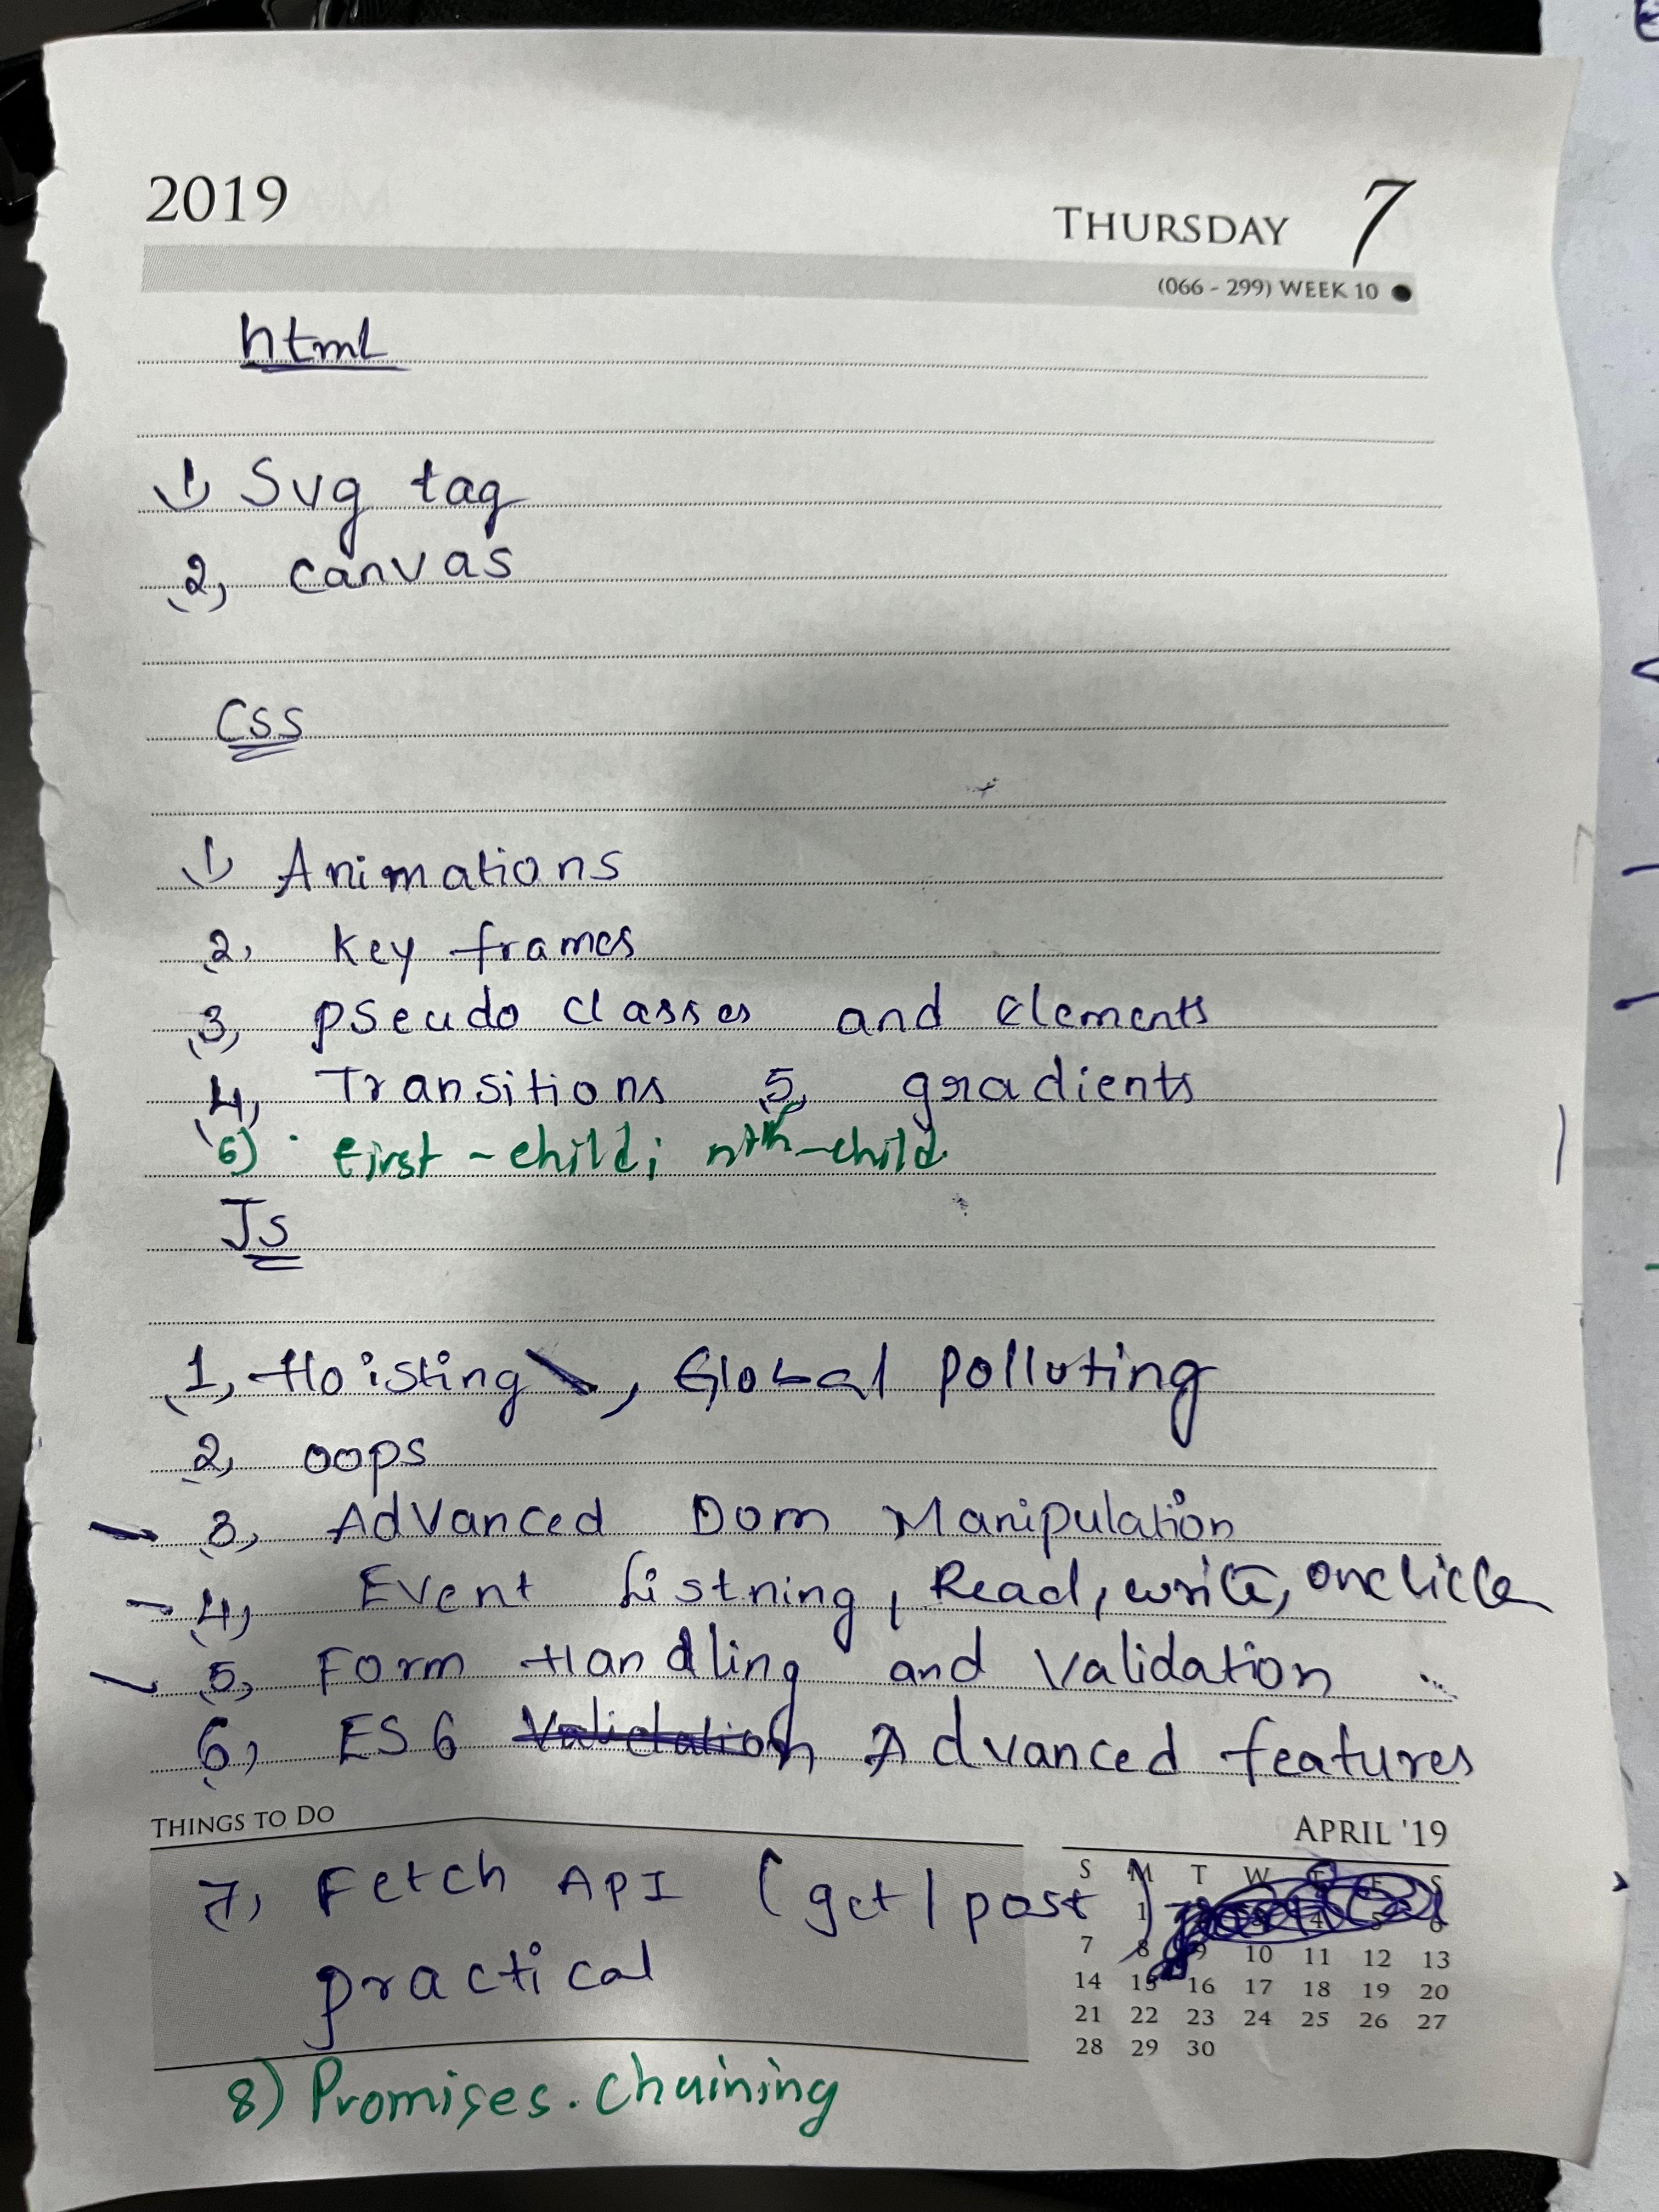 2019 THURSDAY 7
(066 - 299) WEEK 10
html
1) Svg tag
2, canvas
Css
1) Animations
2, key frames
3, pseudo classes and elements
4, Transitions 5, gradients
6) first - child; nth-child.
Js
1, Hoisting, Global polluting
2, oops
3, Advanced Dom Manipulation
4, Event Listning, Read, write, onclick
5, Form Handling and Validation
6, ES6 Validation Advanced features
THINGS TO DO
7, Fetch API (get/post)
practical
8) Promises. chaining
APRIL '19
S M T W F S
1 4 5 6
7 8 9 10 11 12 13
14 15 16 17 18 19 20
21 22 23 24 25 26 27
28 29 30